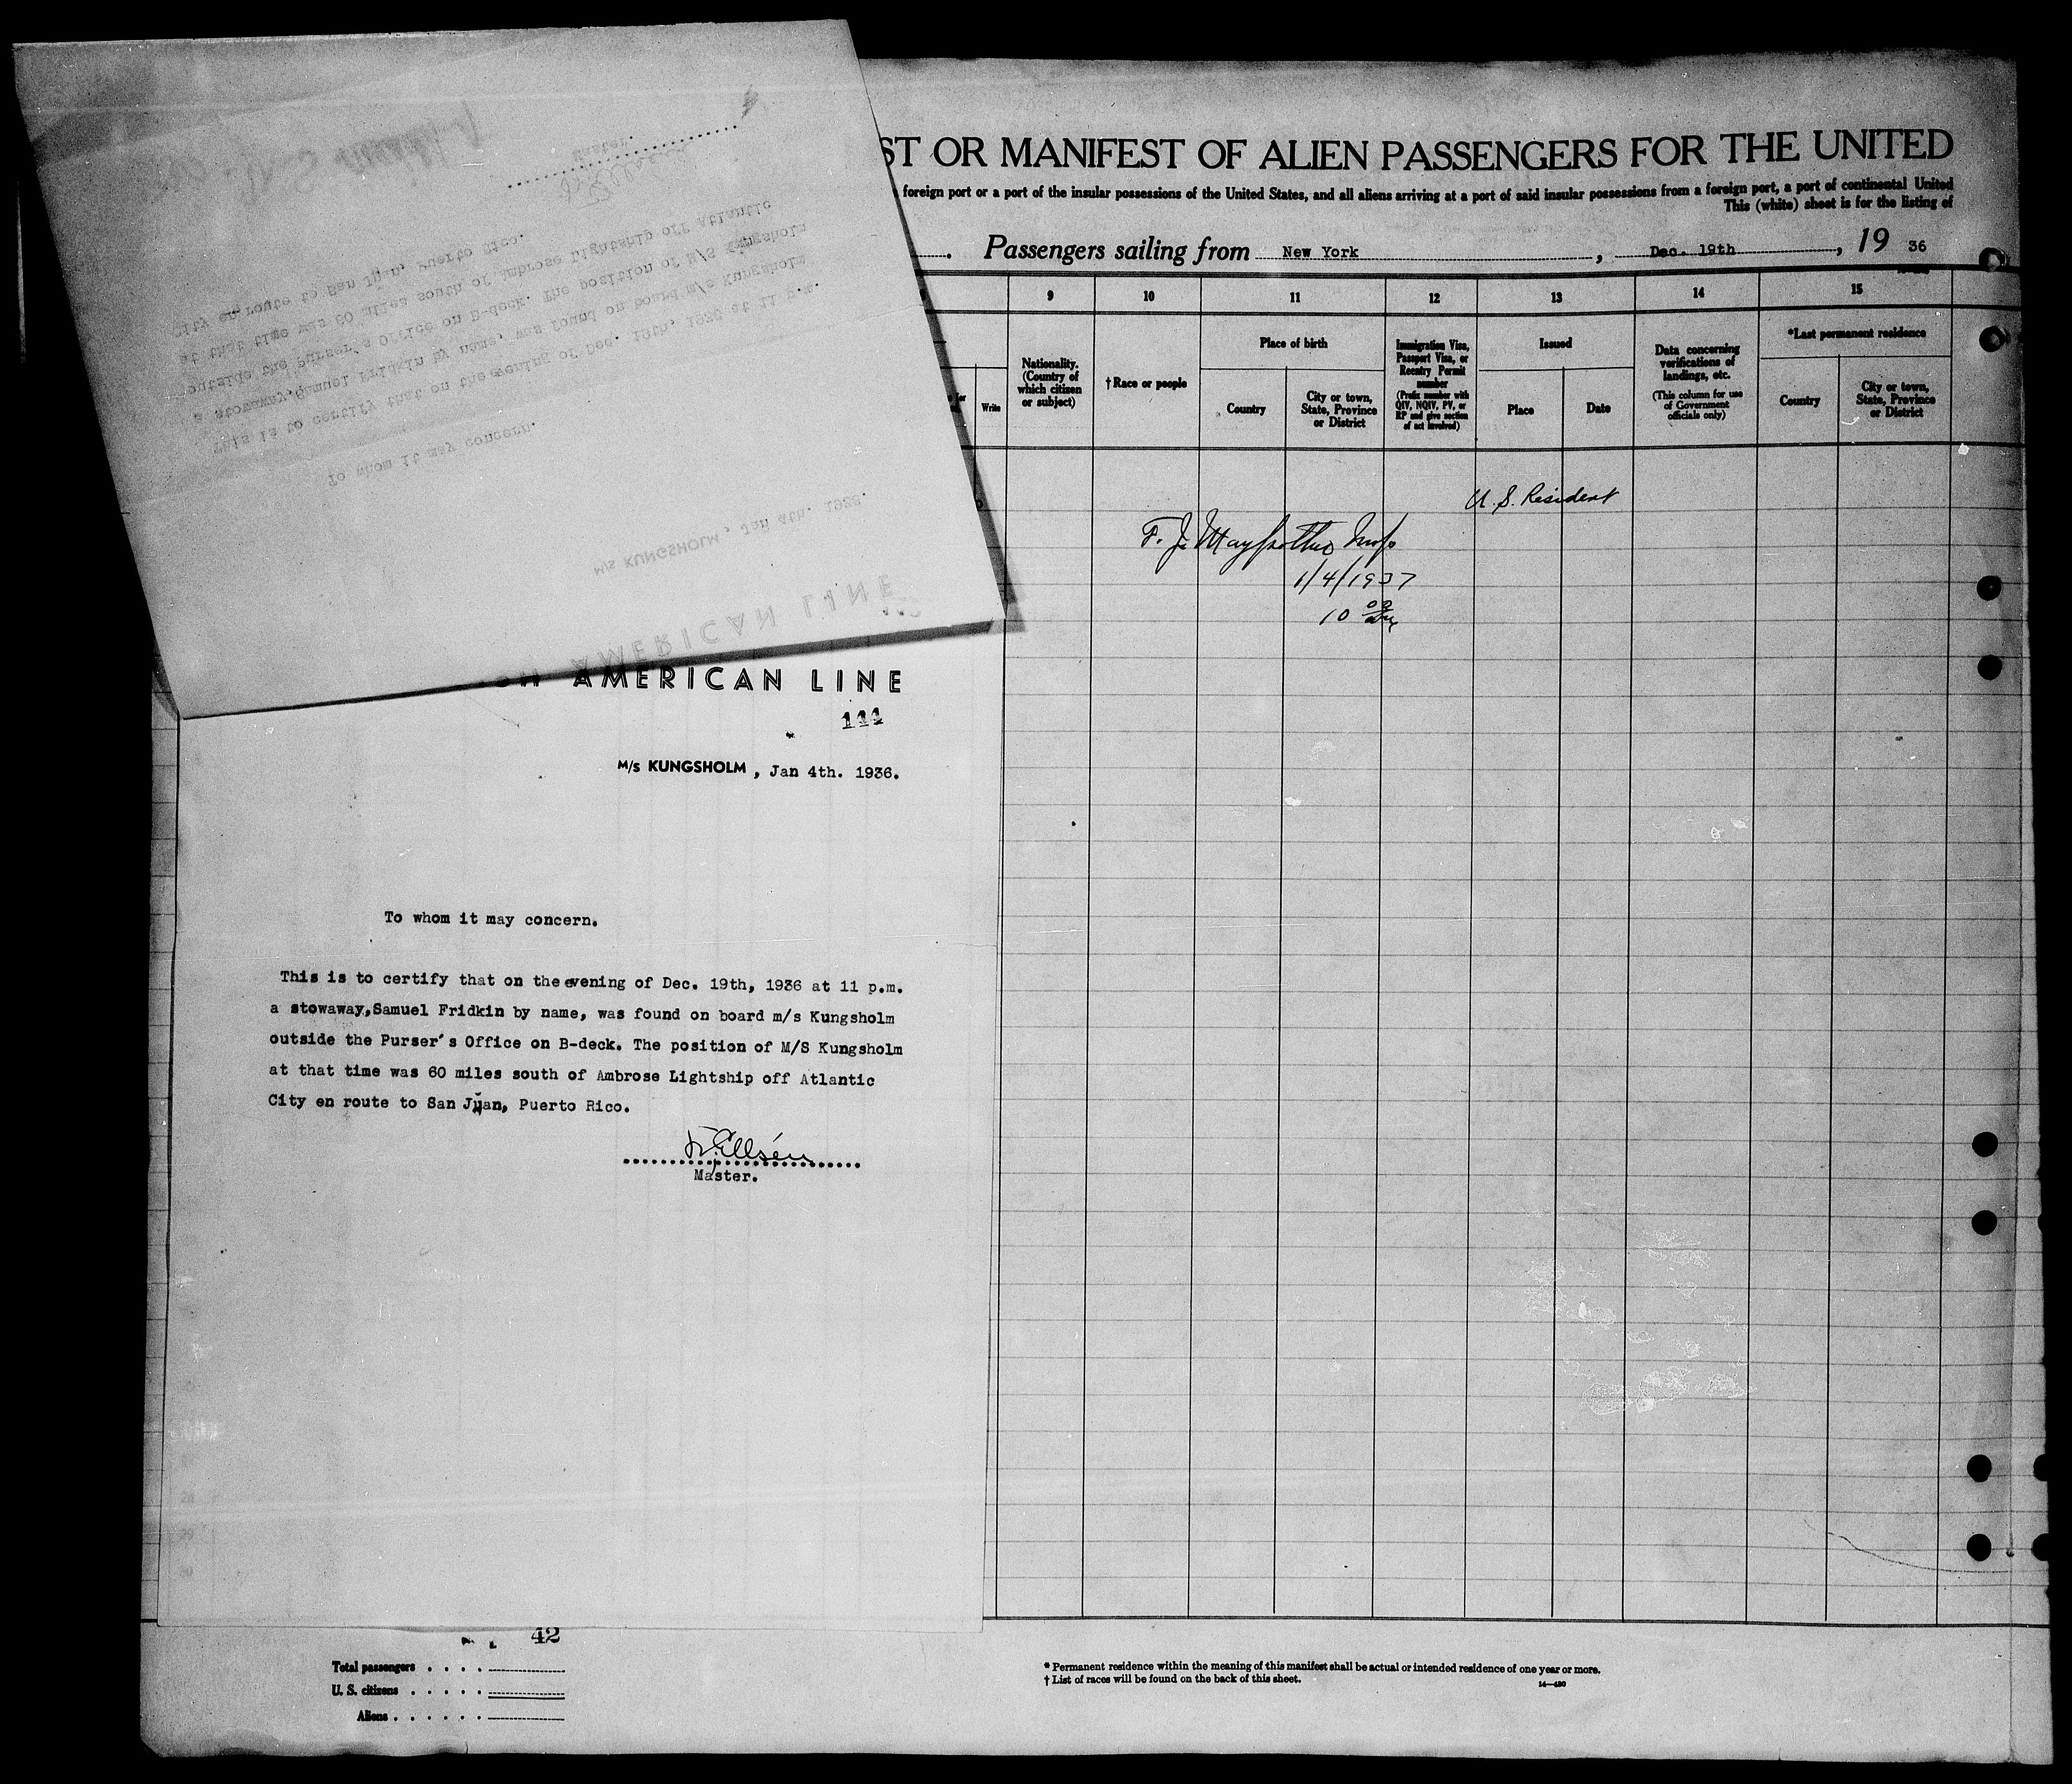 ST OR MANIFEST OF ALIEN PASSENGERS FOR THE UNITED
foreign port or a port of the insular possessions of the United States, and all aliens arriving at a port of said insular possessions from a foreign port, a port of continental United
This (white) sheet is for the listing of
Passengers sailing from New York, Dec. 19th, 19 36
9 10 11 12 13 14 15
Nationality. (Country of which citizen or subject)
†Race or people
Place of birth
Country
City or town, State, Province or District
Immigration Visa, Passport Visa, or Reentry Permit number
(Prefix number with QIV, NQIV, PV, or RP and give section of act involved)
Issued
Place
Date
Data concerning verifications of landings, etc.
(This column for use of Government officials only)
*Last permanent residence
Country
City or town, State, Province or District
Write
U.S. Resident
F. J.
1/4/1937
10 00
AMERICAN LINE
144
M/s KUNGSHOLM, Jan 4th. 1936.
To whom it may concern.
This is to certify that on the evening of Dec. 19th, 1936 at 11 p.m.
a stowaway,Samuel Fridkin by name, was found on board m/s Kungsholm
outside the Purser's Office on B-deck. The position of M/S Kungsholm
at that time was 60 miles south of Ambrose Lightship off Atlantic
City en route to San Juan, Puerto Rico.
Ellsén
Master.
42
Total passengers . . . .
U. S. citizens . . . . .
Aliens . . . . . .
* Permanent residence within the meaning of this manifest shall be actual or intended residence of one year or more.
† List of races will be found on the back of this sheet.
14—430